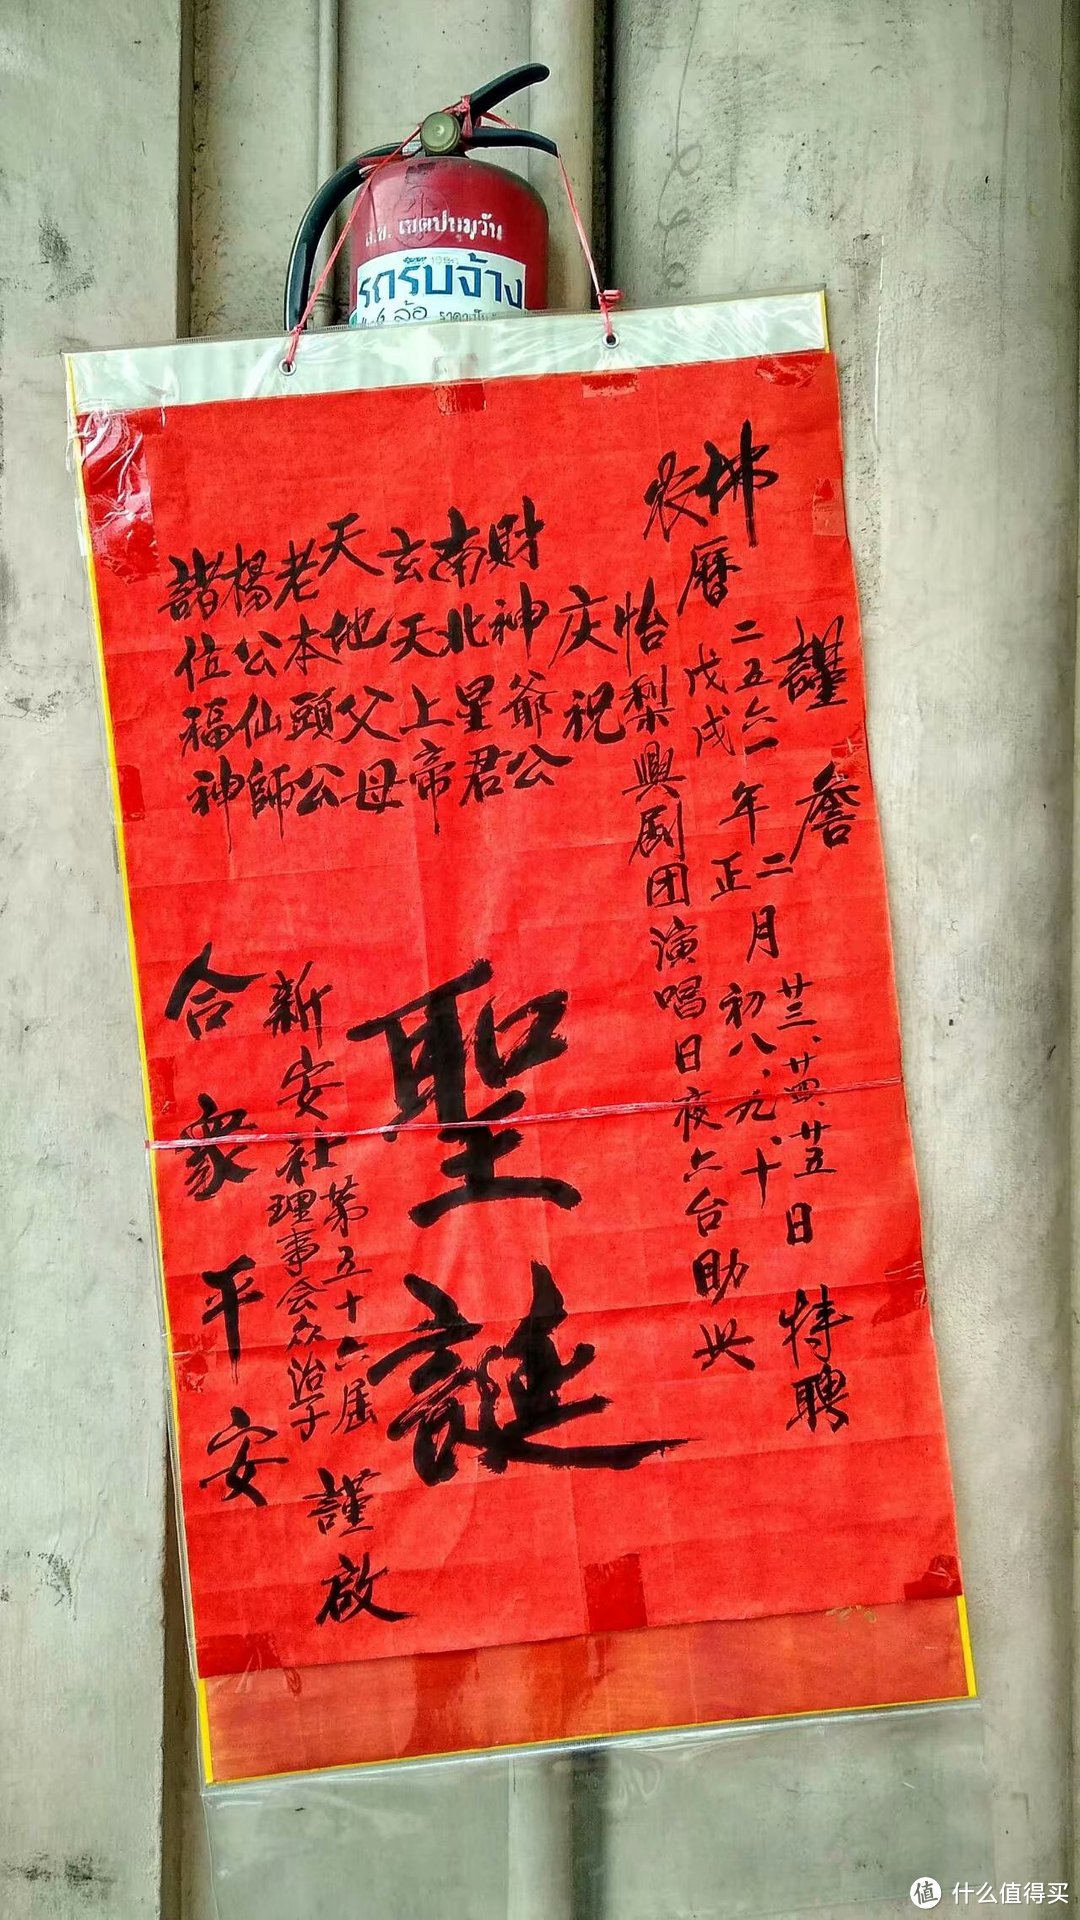 เขตปทุมวัน
รถรับจ้าง
ล้อ
謹詹
佛曆二五六一年二月廿三、廿四、廿五日特聘
农曆戊戌年正月初八、九、十
怡梨興剧团演唱日夜六台助兴
庆祝
財神爺公
南北星君
玄天上帝
天地父母
老本頭公
楊公仙師
諸位福神
聖誕
新安社第五十六届
理事会众治子
謹啟
合衆平安
值 什么值得买